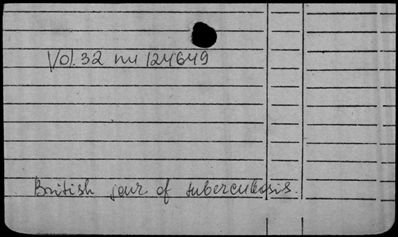 Vol. 32 nu 124649
British jour. of tuberculosis.